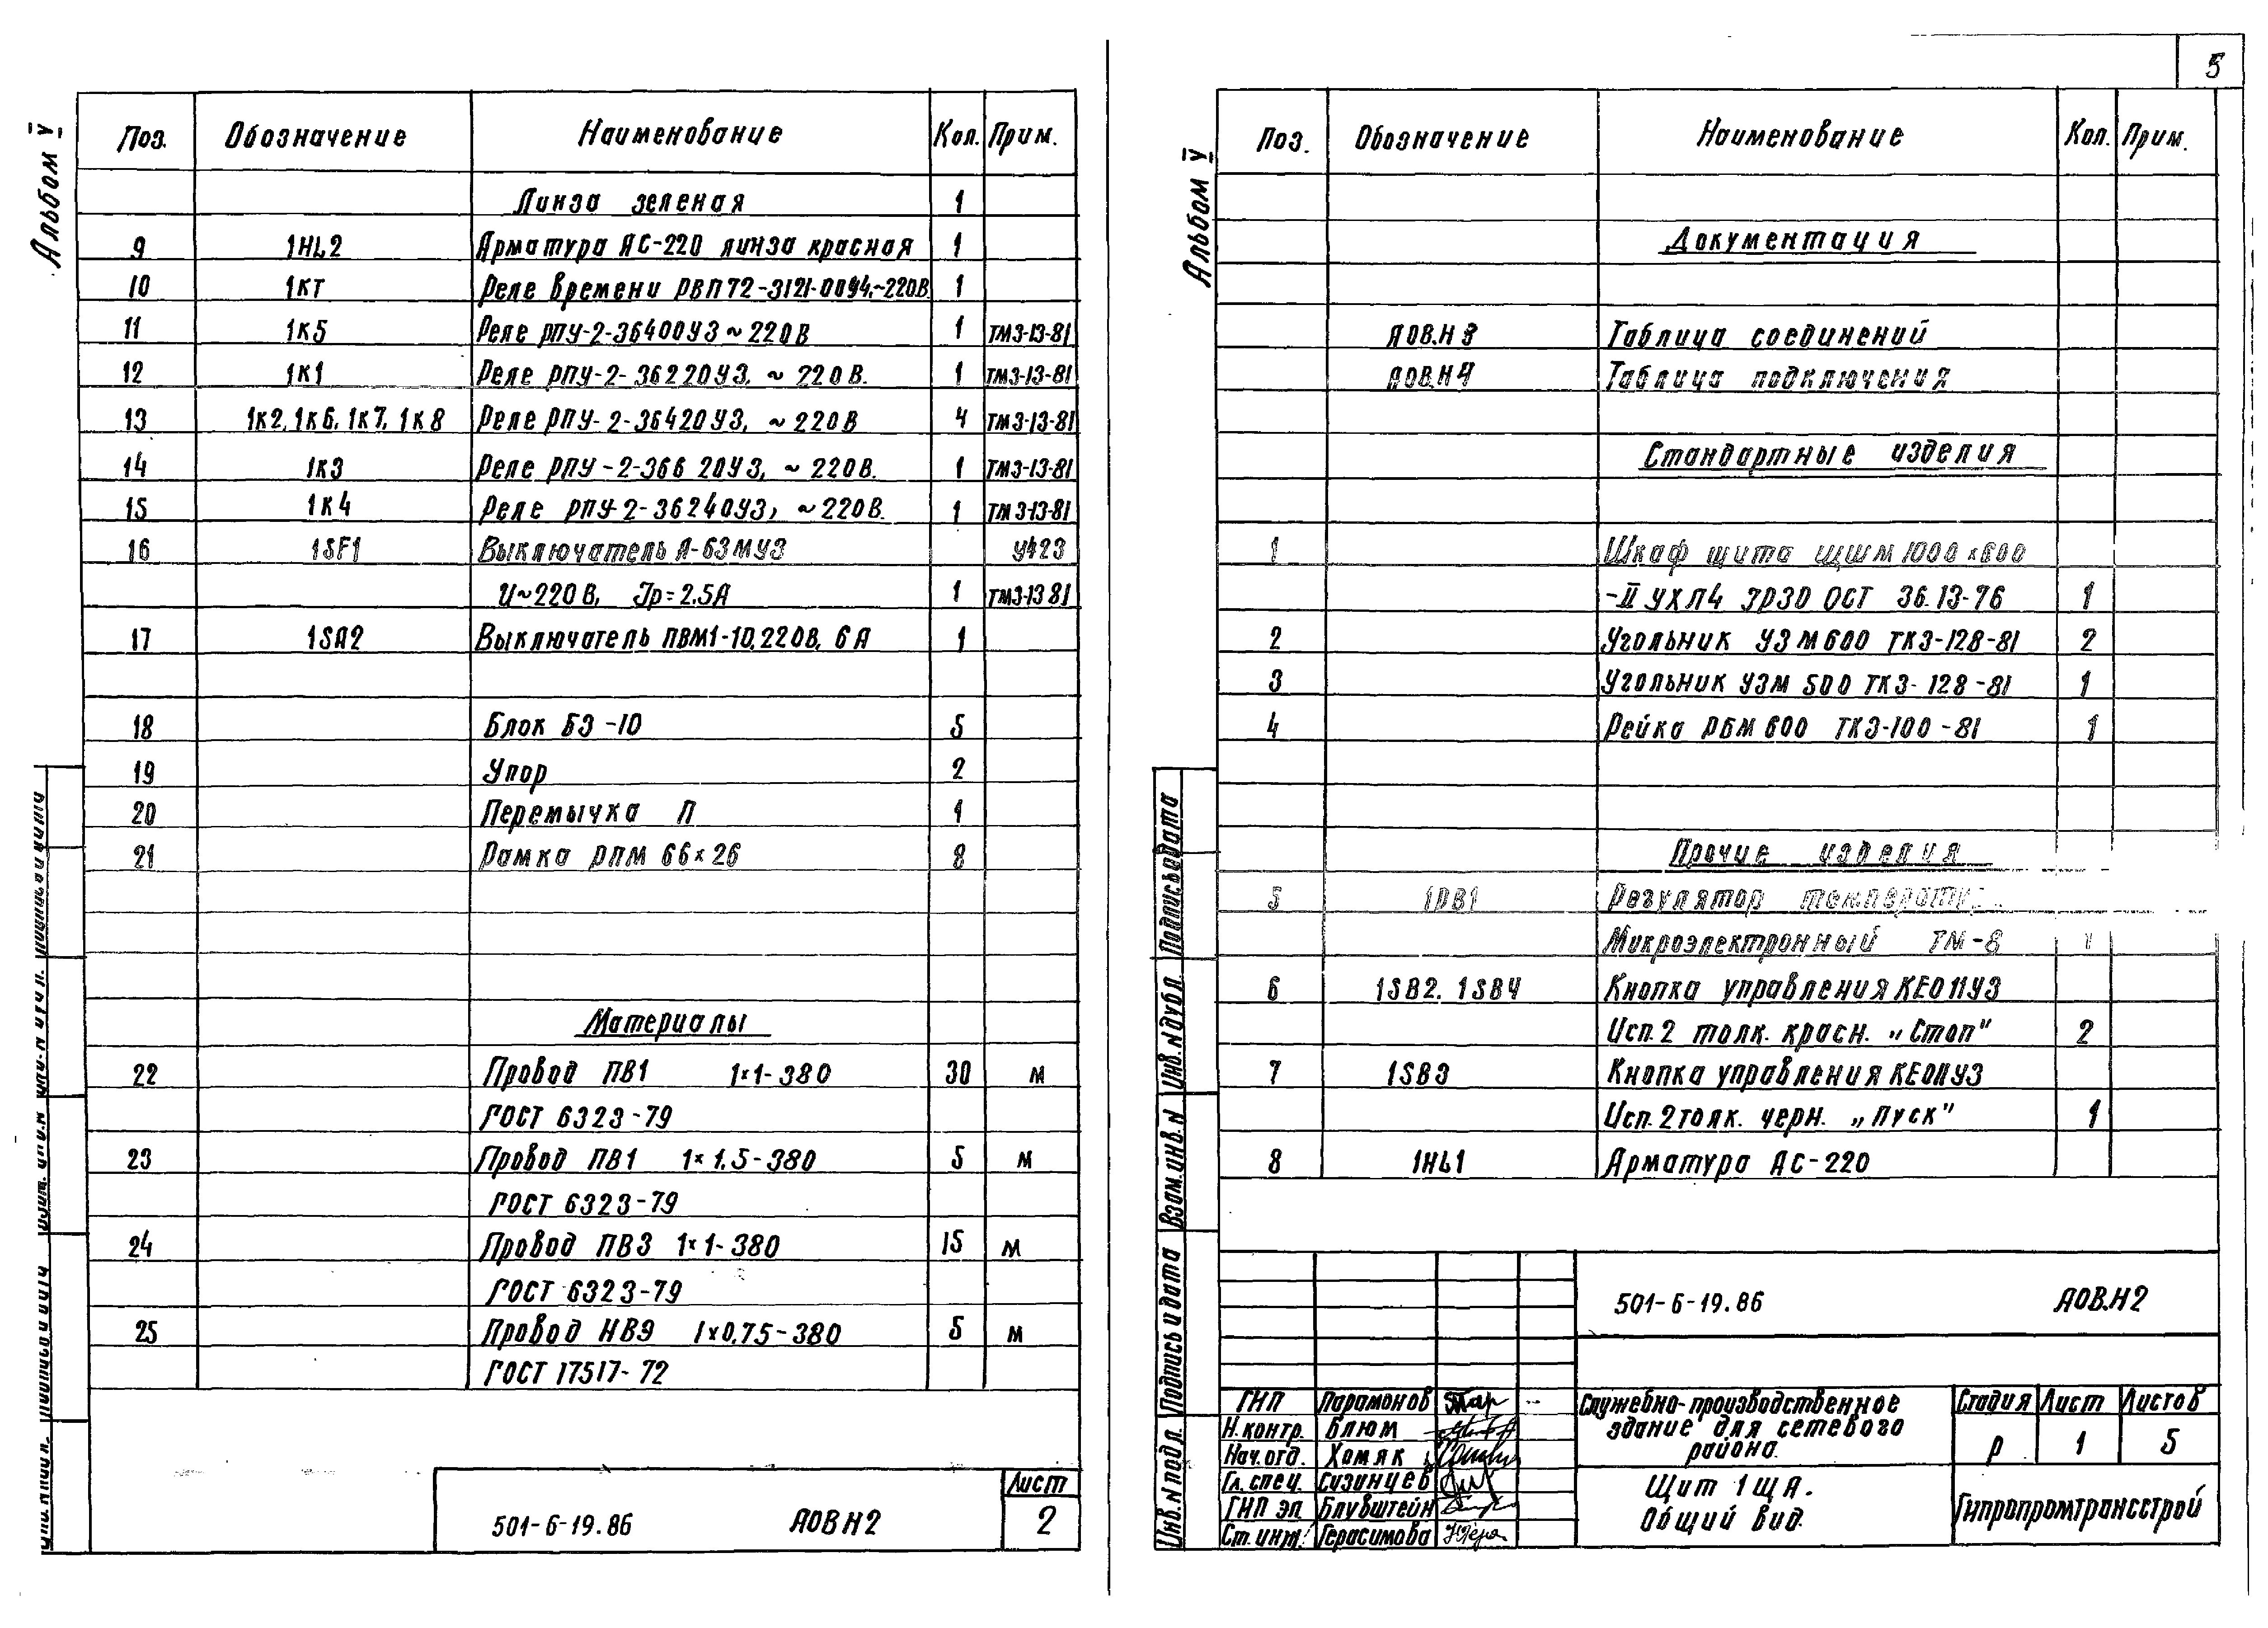 Альбом V
Поз. Обозначение Наименование Кол. Прим.
Линза зеленая 1
9 1HL2 Арматура АС-220 линза красная 1
10 1КТ Реле времени РВП72-3121-00У4,~220В 1
11 1К5 Реле РПУ-2-36400У3 ~ 220В 1 ТМ3-13-81
12 1К1 Реле РПУ-2-36220У3, ~ 220В. 1 ТМ3-13-81
13 1К2, 1К6, 1К7, 1К8 Реле РПУ-2-36420У3, ~ 220В 4 ТМ3-13-81
14 1К3 Реле РПУ-2-36620У3, ~ 220В. 1 ТМ3-13-81
15 1К4 Реле РПУ-2-36240У3, ~220В. 1 ТМ3-13-81
16 1SF1 Выключатель А-63МУ3 У423
U~220В, Jр=2.5А 1 ТМ3-13 81
17 1SA2 Выключатель ПВМ1-10, 220В, 6А 1
18 Блок БЗ-10 5
19 Упор 2
20 Перемычка П 1
21 Рамка РПМ 66×26 8
Материалы
22 Провод ПВ1 1×1-380 30 м
ГОСТ 6323-79
23 Провод ПВ1 1×1.5-380 5 м
ГОСТ 6323-79
24 Провод ПВ3 1×1-380 15 м
ГОСТ 6323-79
25 Провод НВЭ 1×0.75-380 5 м
ГОСТ 17517-72
501-6-19.86 АОВ Н2
Лист
2
5
Альбом V
Поз. Обозначение Наименование Кол. Прим.
Документация
АОВ.Н3 Таблица соединений
АОВ.Н4 Таблица подключения
Стандартные изделия
1 Шкаф щита ЩШМ 1000×600
-II УХЛ4 ЗР30 ОСТ 36.13-76 1
2 Угольник УЗМ600 ТК3-128-81 2
3 Угольник УЗМ 500 ТК3-128-81 1
4 Рейка РБМ 600 ТК3-100-81 1
Прочие изделия
5 1DB1 Регулятор
Микроэлектронный ТМ-8 1
6 1SB2, 1SB4 Кнопка управления КЕ011У3
Исп.2 толк. красн. „Стоп" 2
7 1SB3 Кнопка управления КЕ011У3
Исп.2 толк. черн. „Пуск" 1
8 1HL1 Арматура АС-220
Подпись и дата
Инв.N дубл.
Взам.инв.N
Подпись и дата
Инв.N подл.
501-6-19.86 АОВ.Н2
ГИП Парамонов
Н.контр. Блюм
Нач.отд. Хомяк
Гл.спец. Сизинцев
ГИП эл. Блувштейн
Ст.инж. Герасимова
Служебно-производственное
здание для сетевого
района
Щит 1ЩА.
Общий вид.
Стадия Лист Листов
Р 1 5
Гипропромтрансстрой